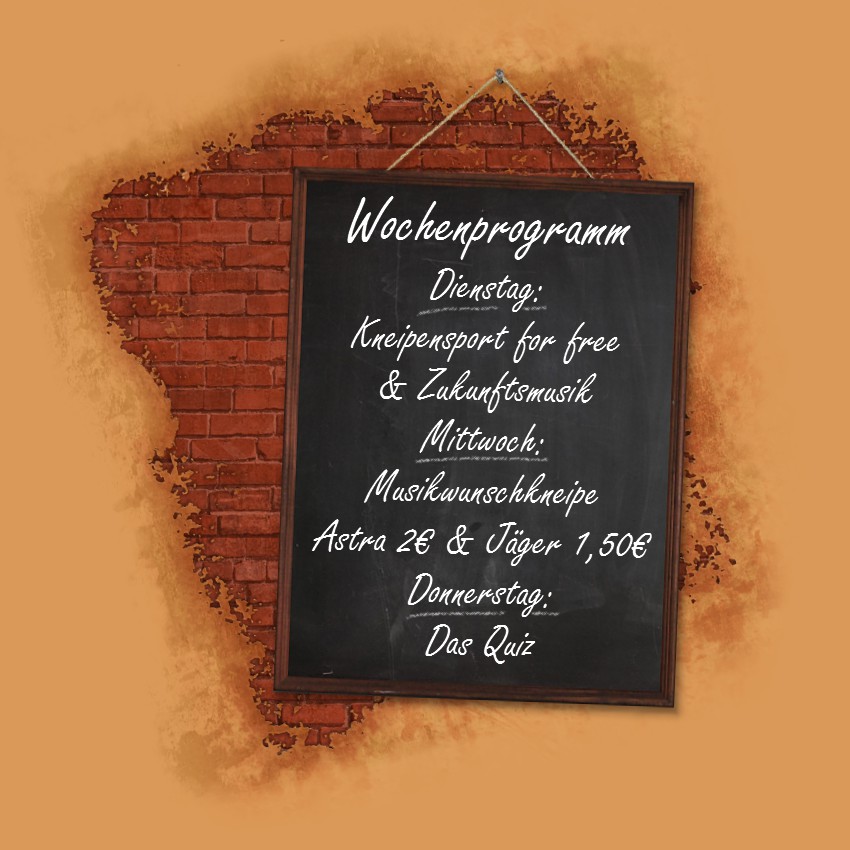 Wochenprogramm
Dienstag:
Kneipensport for free
& Zukunftsmusik
Mittwoch:
Musikwunschkneipe
Astra 2€ & Jäger 1,50€
Donnerstag:
Das Quiz